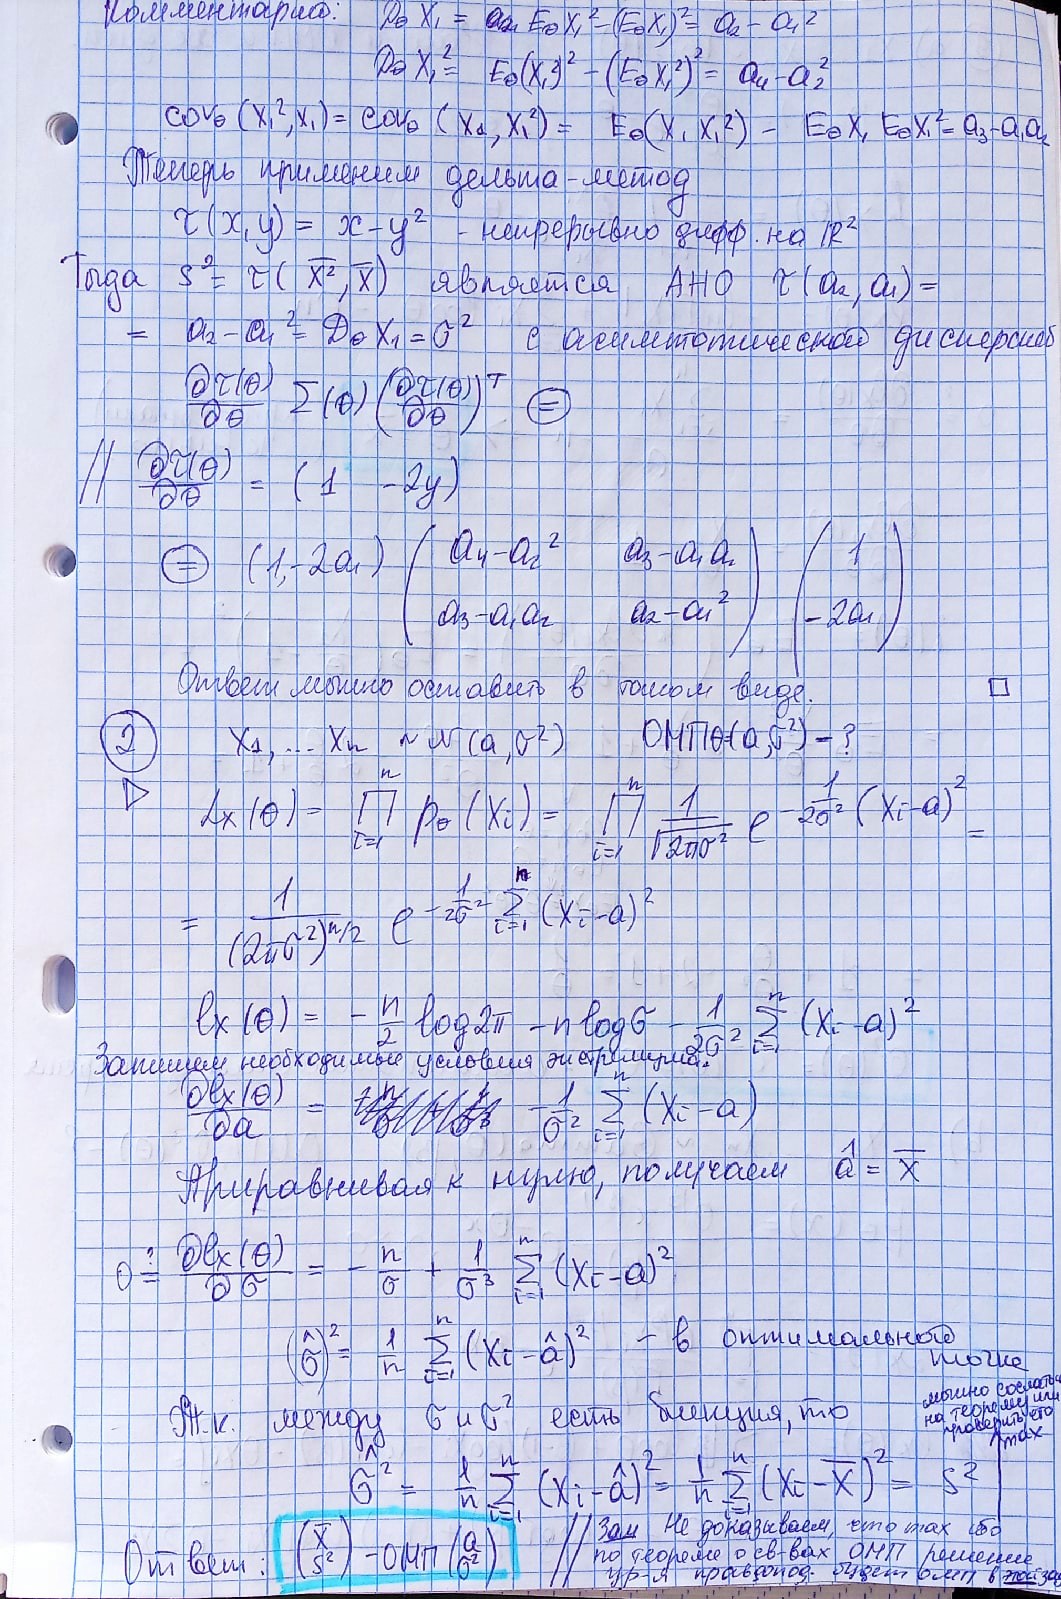 Комментарий: D_θ X₁ = E_θ X₁² - (E_θ X₁)² = a₂ - a₁²
D_θ X₁² = E_θ(X₁²)² - (E_θ X₁²)² = a₄ - a₂²
cov_θ (X₁², X₁) = cov_θ (X₁, X₁²) = E_θ(X₁ X₁²) - E_θ X₁ E_θ X₁² = a₃ - a₁a₂
Теперь применим дельта-метод
τ(x,y) = x - y² - непрерывно дифф. на ℝ²
Тогда S² = τ( X̅², X̅ ) является АНО τ(a₂, a₁) =
= a₂ - a₁² = D_θ X₁ = σ² с асимптотической дисперсией
∂τ(θ)/∂θ Σ(θ) (∂τ(θ)/∂θ)ᵀ ⊜
// ∂τ(θ)/∂θ = (1 -2y)
⊜ (1, -2a₁) ( a₄ - a₂² a₃ - a₁a₂ ) ( 1 )
( a₃ - a₁a₂ a₂ - a₁² ) ( -2a₁ )
Ответ можно оставить в таком виде. □
② X₁, ... Xₙ ~ N(a, σ²) ОМП θ=(a, σ²) - ?
▷ Lx(θ) = ∏ᵢ₌₁ⁿ p_θ(Xᵢ) = ∏ᵢ₌₁ⁿ 1/√(2πσ²) e^(-1/2σ² (Xᵢ-a)²) =
= 1/(2πσ²)^(n/2) e^(-1/2σ² Σᵢ₌₁ⁿ (Xᵢ-a)²)
lx(θ) = -n/2 log2π - n logσ - 1/2σ² Σᵢ₌₁ⁿ (Xᵢ-a)²
Запишем необходимые условия экстремума.
∂lx(θ)/∂a = -1/σ² Σᵢ₌₁ⁿ (Xᵢ-a)
Приравнивая к нулю, получаем â = X̅
0 ≟ ∂lx(θ)/∂σ = -n/σ + 1/σ³ Σᵢ₌₁ⁿ (Xᵢ-a)²
(σ̂)² = 1/n Σᵢ₌₁ⁿ (Xᵢ-â)² - в оптимальной
точке
можно сослаться
на теорему или
проверить, что
max
Т.к. между σ и σ² есть биекция, то
σ̂² = 1/n Σᵢ₌₁ⁿ (Xᵢ-â)² = 1/n Σᵢ₌₁ⁿ (Xᵢ-X̅)² = S²
Ответ: (X̅ S²) - ОМП (a σ²)
// Зам Не доказываем, что max ибо
по теореме о св-вах ОМП решение
ур-я правдопод. будет ОМП в